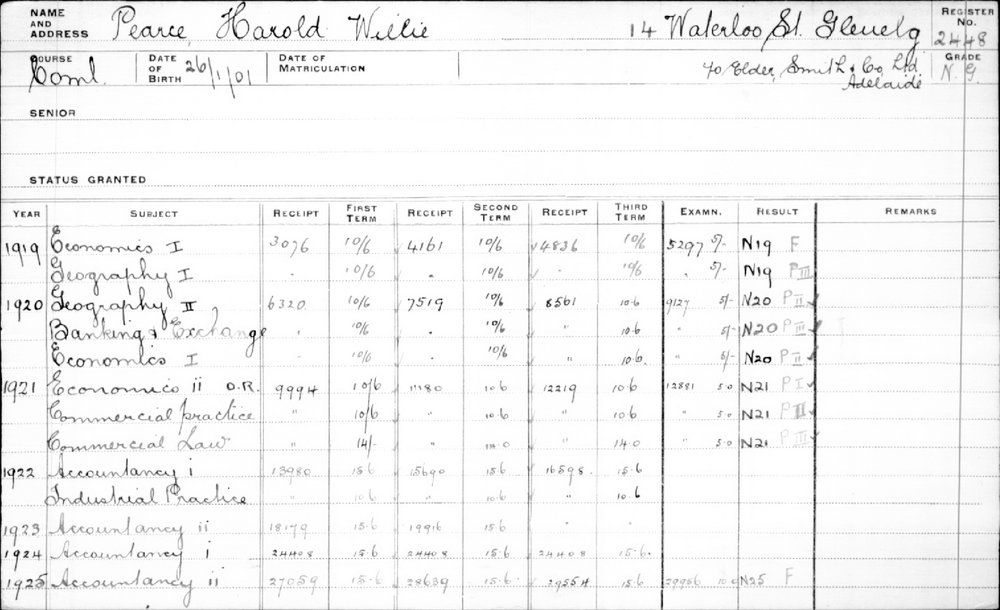 NAME AND ADDRESS Pearce, Harold Willie 14 Waterloo St. Glenelg REGISTER No. 2448
COURSE Coml. DATE OF BIRTH 26/1/01 DATE OF MATRICULATION c/o Elder, Smith & Co. Ltd Adelaide GRADE N. G.
SENIOR
STATUS GRANTED
YEAR SUBJECT RECEIPT FIRST TERM RECEIPT SECOND TERM RECEIPT THIRD TERM EXAMN. RESULT REMARKS
1919 Economics I 3076 10/6 4161 10/6 4836 10/6 5297 5/- N19 F
Geography I " 10/6 " 10/6 " 10/6 " 5/- N19 P III
1920 Geography II 6320 10/6 7519 10/6 8561 10.6 9127 5/- N20 P II ✓
Banking & Exchange " 10/6 " 10/6 " 10.6 " 5/- N20 P III ✓
Economics I " 10/6 10/6 " 10.6. " 5/- N20 P II ✓
1921 Economics ii O.R. 9994 10/6 11180 10.6 12219 10.6 12881 5.0 N21 P I ✓
Commercial practice " 10/6 " 10.6 " 10.6 " 5.0 N21 P III ✓
Commercial Law " 14/- " 14.0 " 14.0 " 5.0 N21 P III ✓
1922 Accountancy i 13980 15.6 15690 15.6 16598. 15.6
Industrial Practice " 10.6 " 10.6 " 10.6
1923 Accountancy ii 18179 15.6 19916 15.6 " "
1924 Accountancy i 24408 15.6 24408 15.6 24408 15.6.
1925 Accountancy ii 27059 15.6 28639 15.6. 29554 15.6 29956 10.0 N25 F